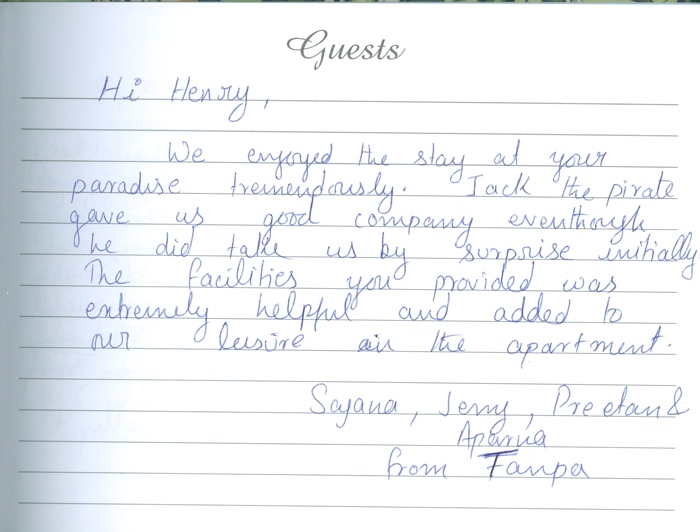 Guests
Hi Henry,
We enjoyed the stay at your
paradise tremendously. Jack the pirate
gave us good company eventhough
he did take us by surprise initially
The facilities you provided was
extremely helpful and added to
our leisure in the apartment.
Sajana, Jerry, Preetan &
Aparna
from Tampa